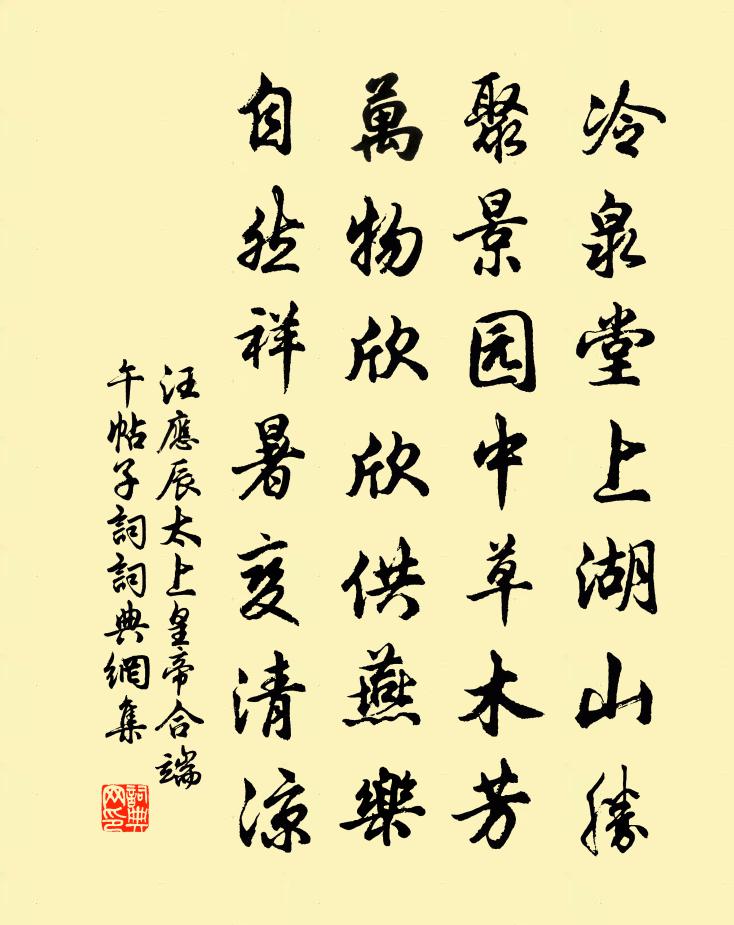 冷泉堂上湖山勝
聚景园中草木芳
萬物欣欣供燕樂
自然祥暑变清凉
汪應辰太上皇帝合端
午帖子詞詞典網集
詞典
网印